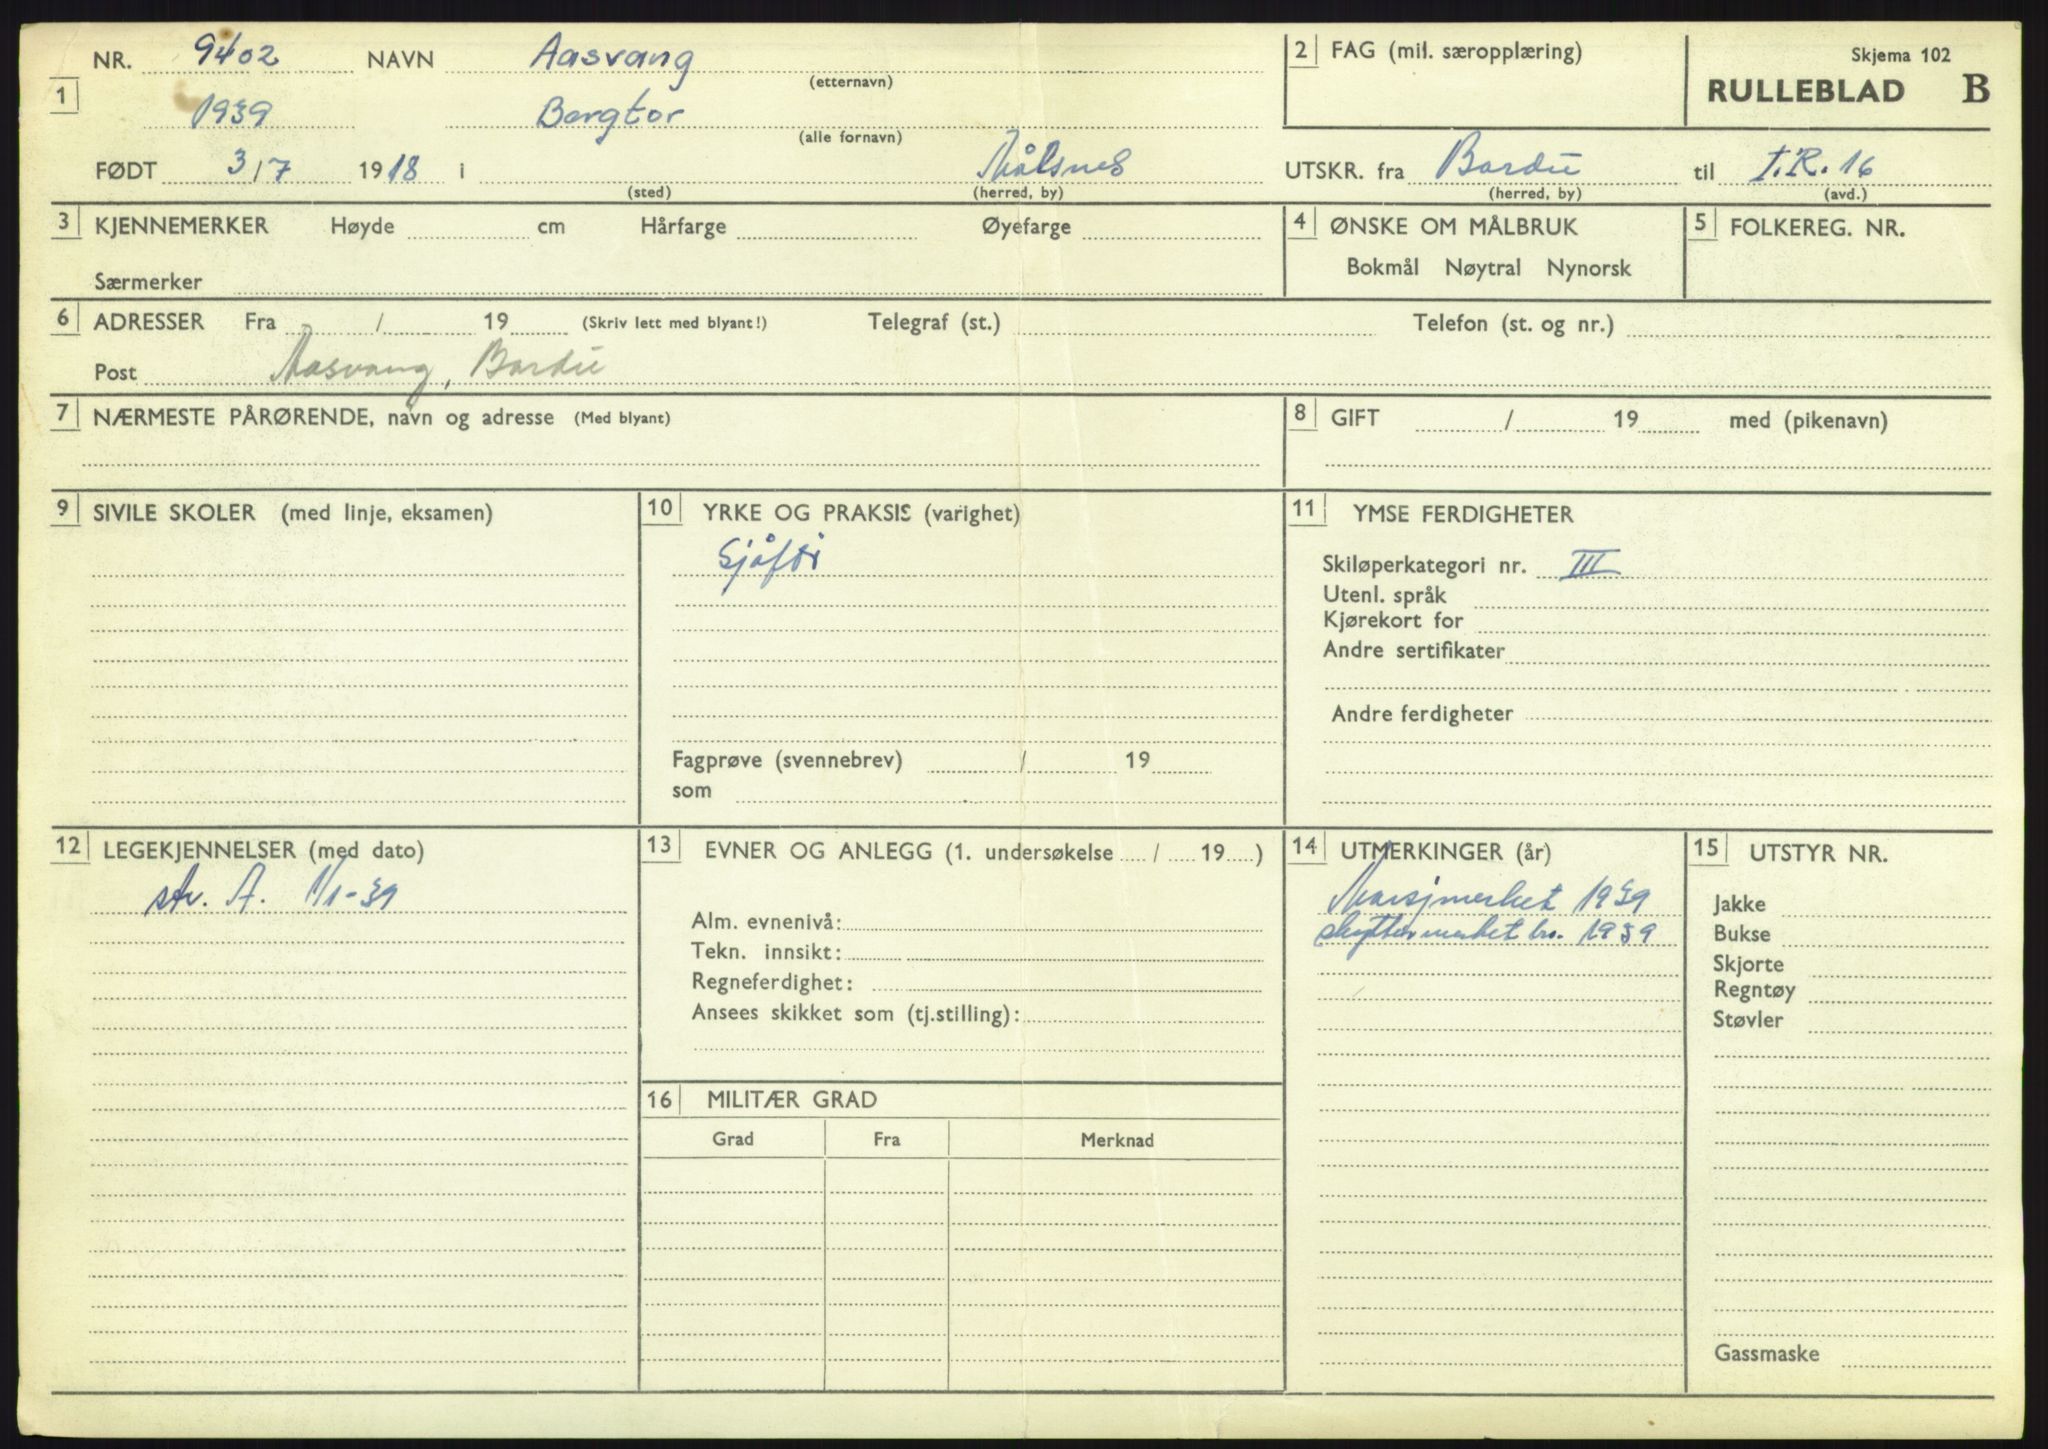 NR. 9402 NAVN Aasvang
(etternavn)
2 FAG (mil. særopplæring)
Skjema 102
RULLEBLAD B
1
1939 Bergtor
(alle fornavn)
FØDT 3/7 1918 i Målsnes
(sted) (herred, by)
UTSKR. fra Bardu til I.R. 16
(herred, by) (avd.)
3 KJENNEMERKER Høyde cm Hårfarge Øyefarge
Særmerker
4 ØNSKE OM MÅLBRUK
Bokmål Nøytral Nynorsk
5 FOLKEREG. NR.
6 ADRESSER Fra / 19 (Skriv lett med blyant!) Telegraf (st.) Telefon (st. og nr.)
Post Aasvang, Bardu
7 NÆRMESTE PÅRØRENDE, navn og adresse (Med blyant)
8 GIFT / 19 med (pikenavn)
9 SIVILE SKOLER (med linje, eksamen)
10 YRKE OG PRAKSIS (varighet)
Sjåfør
Fagprøve (svennebrev) / 19
som
11 YMSE FERDIGHETER
Skiløperkategori nr. III
Utenl. språk
Kjørekort for
Andre sertifikater
Andre ferdigheter
12 LEGEKJENNELSER (med dato)
str. A. 1/1-39
13 EVNER OG ANLEGG (1. undersøkelse / 19 )
Alm. evnenivå:
Tekn. innsikt:
Regneferdighet:
Ansees skikket som (tj.stilling):
14 UTMERKINGER (år)
Marsjmerket 1939
skyttermerket br. 1939
15 UTSTYR NR.
Jakke
Bukse
Skjorte
Regntøy
Støvler
Gassmaske
16 MILITÆR GRAD
Grad Fra Merknad